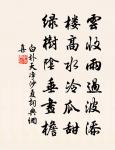 雲收雨過波添
樓高水冷瓜甜
綠樹陰垂畫檐
白朴天淨沙夏詞典網
喜